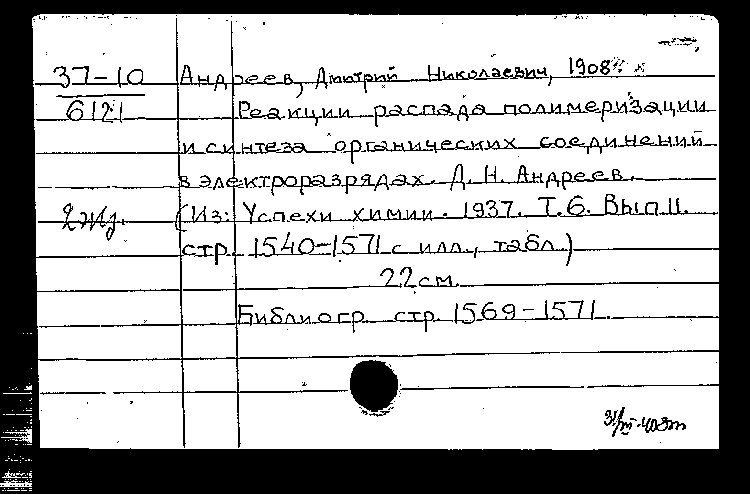 37-10
6121
2 экз.
Андреев, Дмитрий Николаевич, 1908
Реакции распада полимеризации
и синтеза органических соединений
в электроразрядах. Д. Н. Андреев.
(Из: Успехи химии. 1937. Т.6. Вып 11.
стр. 1540-1571 с илл., табл.)
22 см.
Библиогр. стр. 1569-1571.